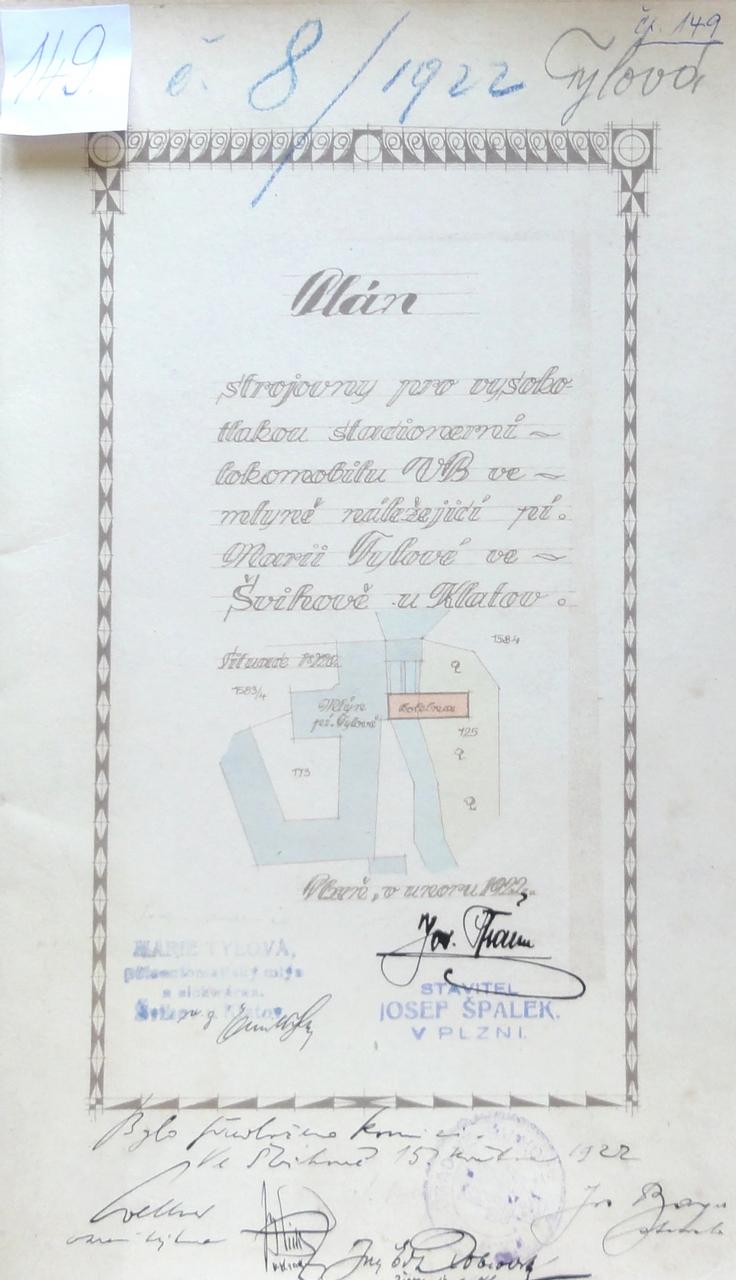 149.
čp. 149
č. 8/1922 Tylová
Plán
strojovny pro vysoko-
tlakou stacionerní ~
lokomobilu VB ve ~
mlýně náležející pí.
Marii Tylové ve ~
Švihově u Klatov.
Situace 1:720.
1584
1583/4
Mlýn
pí. Tylové
kotelna
q
125
q
173
q
Plzeň, v únoru 1922.
Jos. Špalek
MARIE TYLOVÁ,
poloautomatický mlýn
Švihov Klatov
STAVITEL
JOSEF ŠPALEK.
V PLZNI.
Bylo předloženo komisi.
Ve Švihově 15 května 1922
Jos
Ing